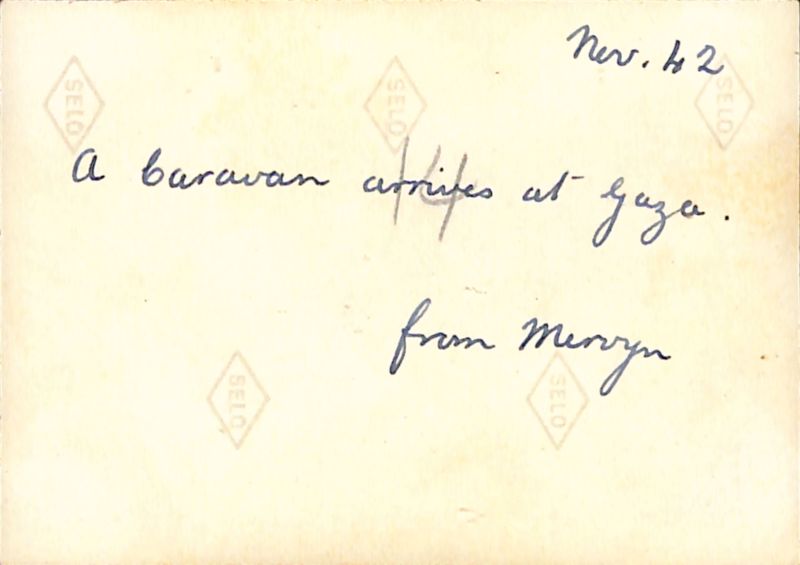 Nov. 42
SELO SELO SELO
A Caravan arrives at Gaza.
14
from Mervyn
SELO SELO